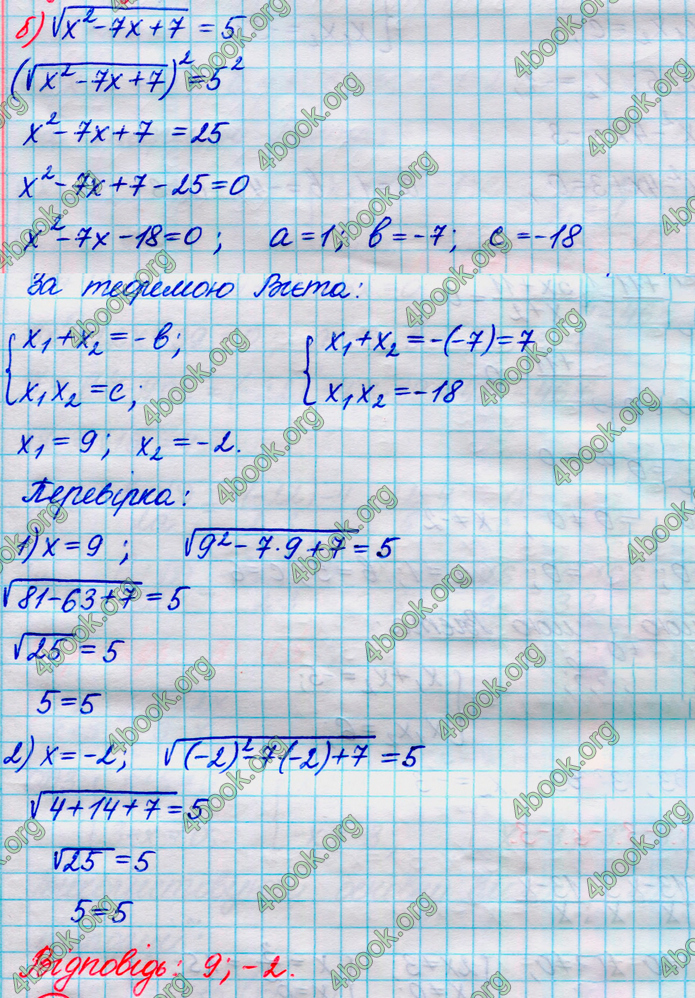 б) √(x² - 7x + 7) = 5
(√(x² - 7x + 7))² = 5²
x² - 7x + 7 = 25
x² - 7x + 7 - 25 = 0
x² - 7x - 18 = 0 ; a = 1; в = -7; c = -18
За теоремою Вієта:
{ x₁ + x₂ = -в; { x₁ + x₂ = -(-7) = 7
x₁x₂ = c; x₁x₂ = -18
x₁ = 9; x₂ = -2.
Перевірка:
1) x = 9 ; √(9² - 7·9 + 7) = 5
√(81 - 63 + 7) = 5
√25 = 5
5 = 5
2) x = -2; √((-2)² - 7·(-2) + 7) = 5
√(4 + 14 + 7) = 5
√25 = 5
5 = 5
Відповідь: 9; -2.
4book.org